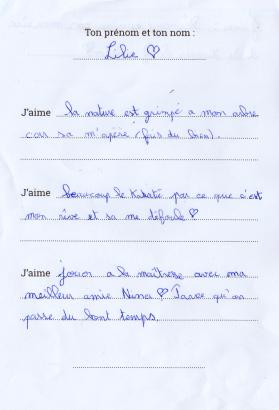 Ton prénom et ton nom :
Lilie ♡
J'aime la nature est grimpé a mon arbre
cars sa m'apère (fais du bien).
J'aime beaucoup le Karaté par ce que c'est
mon rêve et sa me défoule ♡
J'aime jouer a la maîtresse avec ma
meilleur amie Nina ♡ Parce qu'on
passe du bont temps.